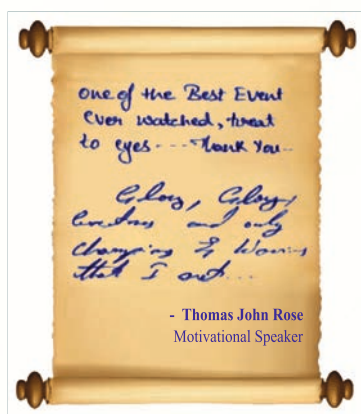 one of the Best Event
Ever watched, treat
to eyes --- Thank You..
Glory, Glory,
and only
that I
- Thomas John Rose
Motivational Speaker